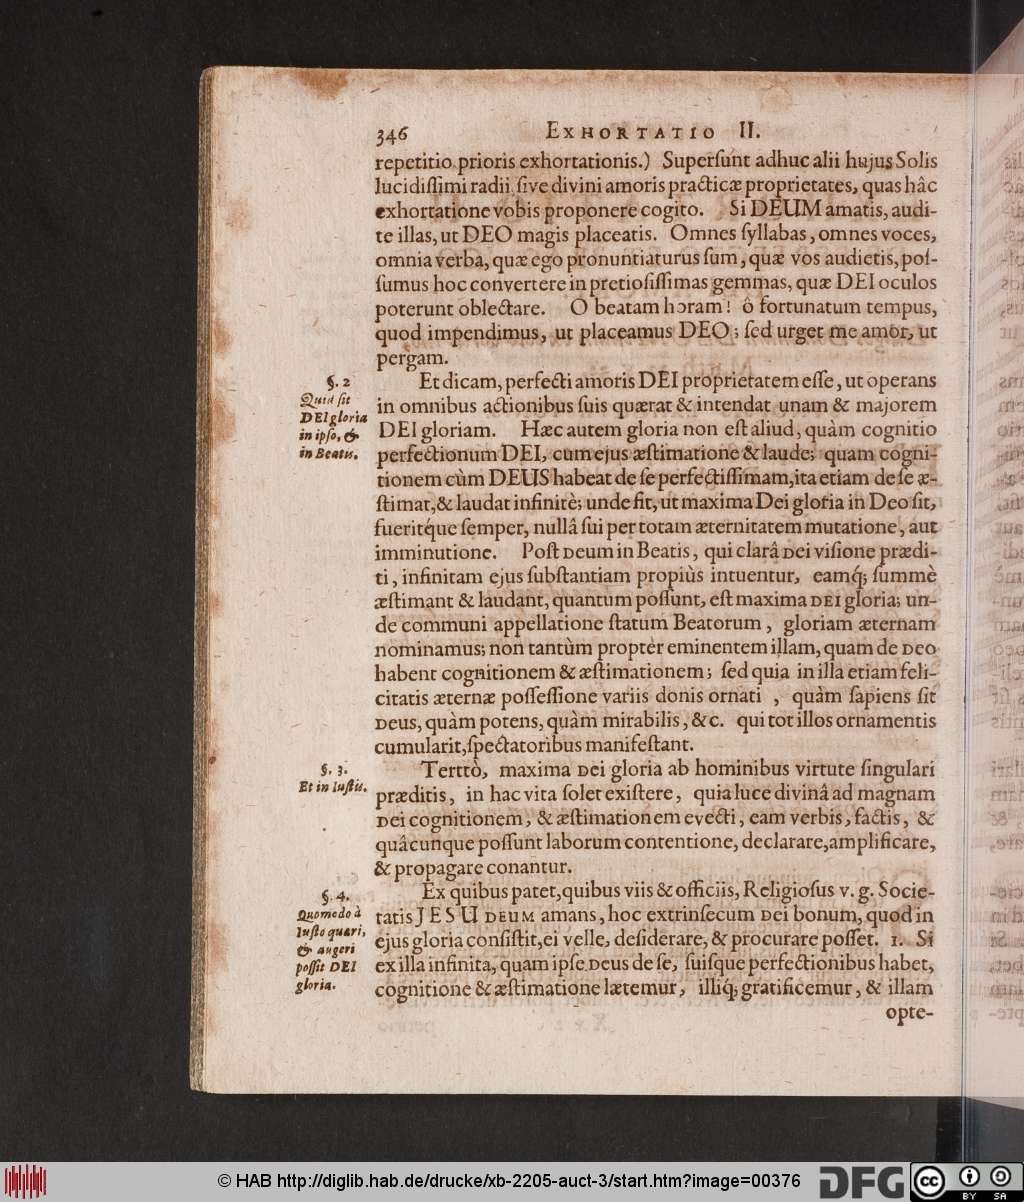 346 EXHORTATIO II.
repetitio prioris exhortationis.) Superſunt adhuc alii hujus Solis
lucidiſſimi radii ſive divini amoris practicæ proprietates, quas hâc
exhortatione vobis proponere cogito. Si DEUM amatis, audi-
te illas, ut DEO magis placeatis. Omnes ſyllabas, omnes voces,
omnia verba, quæ ego pronuntiaturus ſum, quæ vos audietis, poſ-
ſumus hoc convertere in pretioſiſſimas gemmas, quæ DEI oculos
poterunt oblectare. O beatam horam! ô fortunatum tempus,
quod impendimus, ut placeamus DEO; ſed urget me amor, ut
pergam.
§. 2
Quid ſit
DEI gloria
in ipſo, &
in Beatis.
Et dicam, perfecti amoris DEI proprietatem eſſe, ut operans
in omnibus actionibus ſuis quærat & intendat unam & majorem
DEI gloriam. Hæc autem gloria non eſt aliud, quàm cognitio
perfectionum DEI, cum ejus æſtimatione & laude; quam cogni-
tionem cùm DEUS habeat de ſe perfectiſſimam, ita etiam de ſe æ-
ſtimat, & laudat infinitè; unde fit, ut maxima Dei gloria in Deo ſit,
fueritq́ue ſemper, nullâ ſui per totam æternitatem mutatione, aut
imminutione. Poſt DEUM in Beatis, qui clarâ DEI viſione prædi-
ti, infinitam ejus ſubſtantiam propiùs intuentur, eamq́; ſummè
æſtimant & laudant, quantum poſſunt, eſt maxima DEI gloria; un-
de communi appellatione ſtatum Beatorum, gloriam æternam
nominamus; non tantùm propter eminentem illam, quam de DEO
habent cognitionem & æſtimationem; ſed quia in illa etiam feli-
citatis æternæ poſſeſſione variis donis ornati, quàm ſapiens ſit
DEUS, quàm potens, quàm mirabilis, &c. qui tot illos ornamentis
cumularit, ſpectatoribus manifeſtant.
§. 3.
Et in Iuſtis.
Tertiò, maxima DEI gloria ab hominibus virtute ſingulari
præditis, in hac vita ſolet exiſtere, quia luce divinâ ad magnam
DEI cognitionem, & æſtimationem evecti, eam verbis, factis, &
quâcunque poſſunt laborum contentione, declarare, amplificare,
& propagare conantur.
§. 4.
Quomodo à
Iuſto quæri,
& augeri
poſſit DEI
gloria.
Ex quibus patet, quibus viis & officiis, Religioſus v. g. Socie-
tatis JESU DEUM amans, hoc extrinſecum DEI bonum, quod in
ejus gloria conſiſtit, ei velle, deſiderare, & procurare poſſet. 1. Si
ex illa infinita, quam ipſe DEUS de ſe, ſuiſque perfectionibus habet,
cognitione & æſtimatione lætemur, illiq́; gratificemur, & illam
opte-
© HAB http://diglib.hab.de/drucke/xb-2205-auct-3/start.htm?image=00376
DFG
cc BY SA